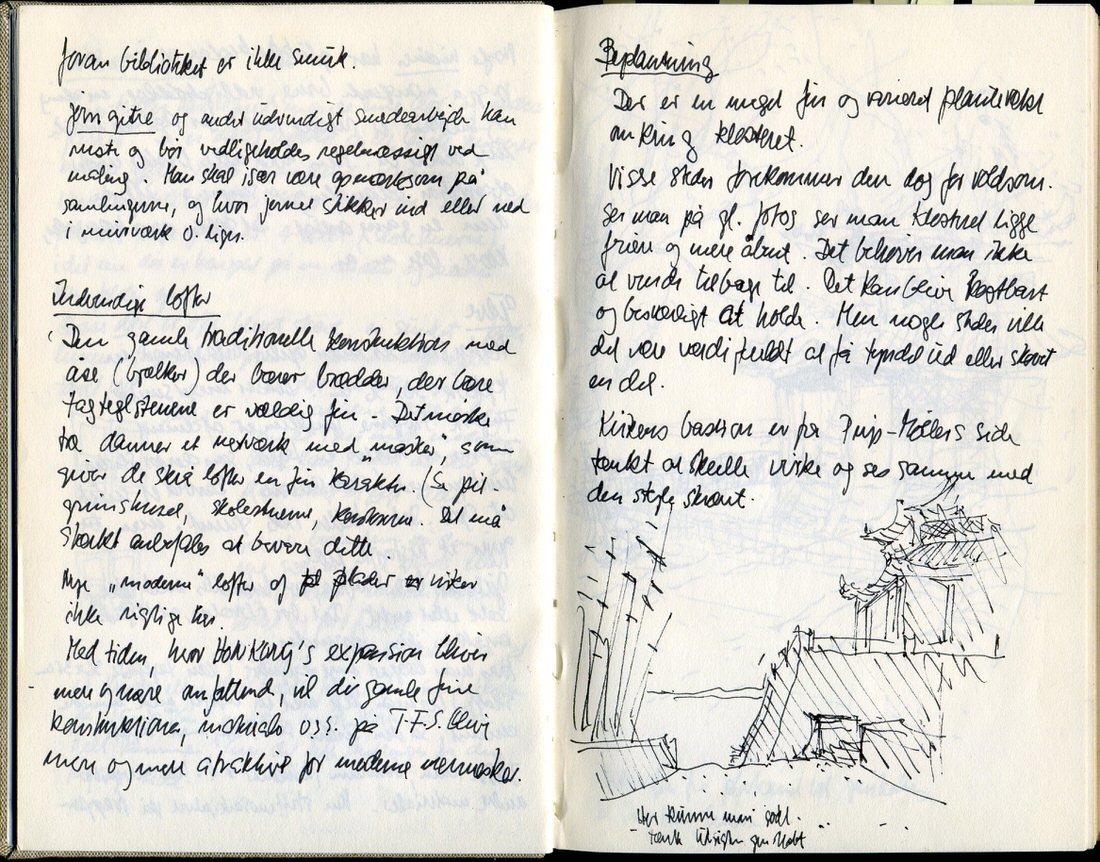 foran biblioteket er ikke smuk.
Jerngitre og andet udvendigt smedearbejde kan
ruste og bør vedligeholdes regelmæssigt ved
maling. Man skal især være opmærksom på
samlingerne, og hvor jernet stikker ind eller ned
i murværk o. lign.
Indvendige lofter
Den gamle traditionelle konstruktion med
åse (bjælker) der bærer brædder, der bære
tagteglstenene er vældig fin.
danner et netværk med „masker", som
giver de skrå lofter en fin karakter. (Se pil-
grimshused, skolestuerne, kontorerne. Det må
stærkt anbefales at bevare dette.
Nye „moderne" lofter af plader virker
ikke rigtige her.
Med tiden, hvor HonKong's expansion bliver
mere og mere omfattende, vil de gamle fine
konstruktioner, materialer o.s.v. på T.F.S. blive
mere og mere atraktive for moderne mennesker.
Beplantning
Der er en meget fin og varieret plantevækst
omkring klosteret.
Visse steder forekommer den dog for voldsom.
Ser man på gl. fotos ser man klosteret ligge
friere og mere åbent. Det behøver man ikke
at vende tilbage til. Det kan blive kostbart
og besværligt at holde. Men nogle steder ville
det være værdifuldt at få tyndet ud eller skåret
en del.
Kirkens bastion er fra Prip-Møllers side
tænkt at skulle virke og ses sammen med
den stejle skrænt.
Her kunne man godt